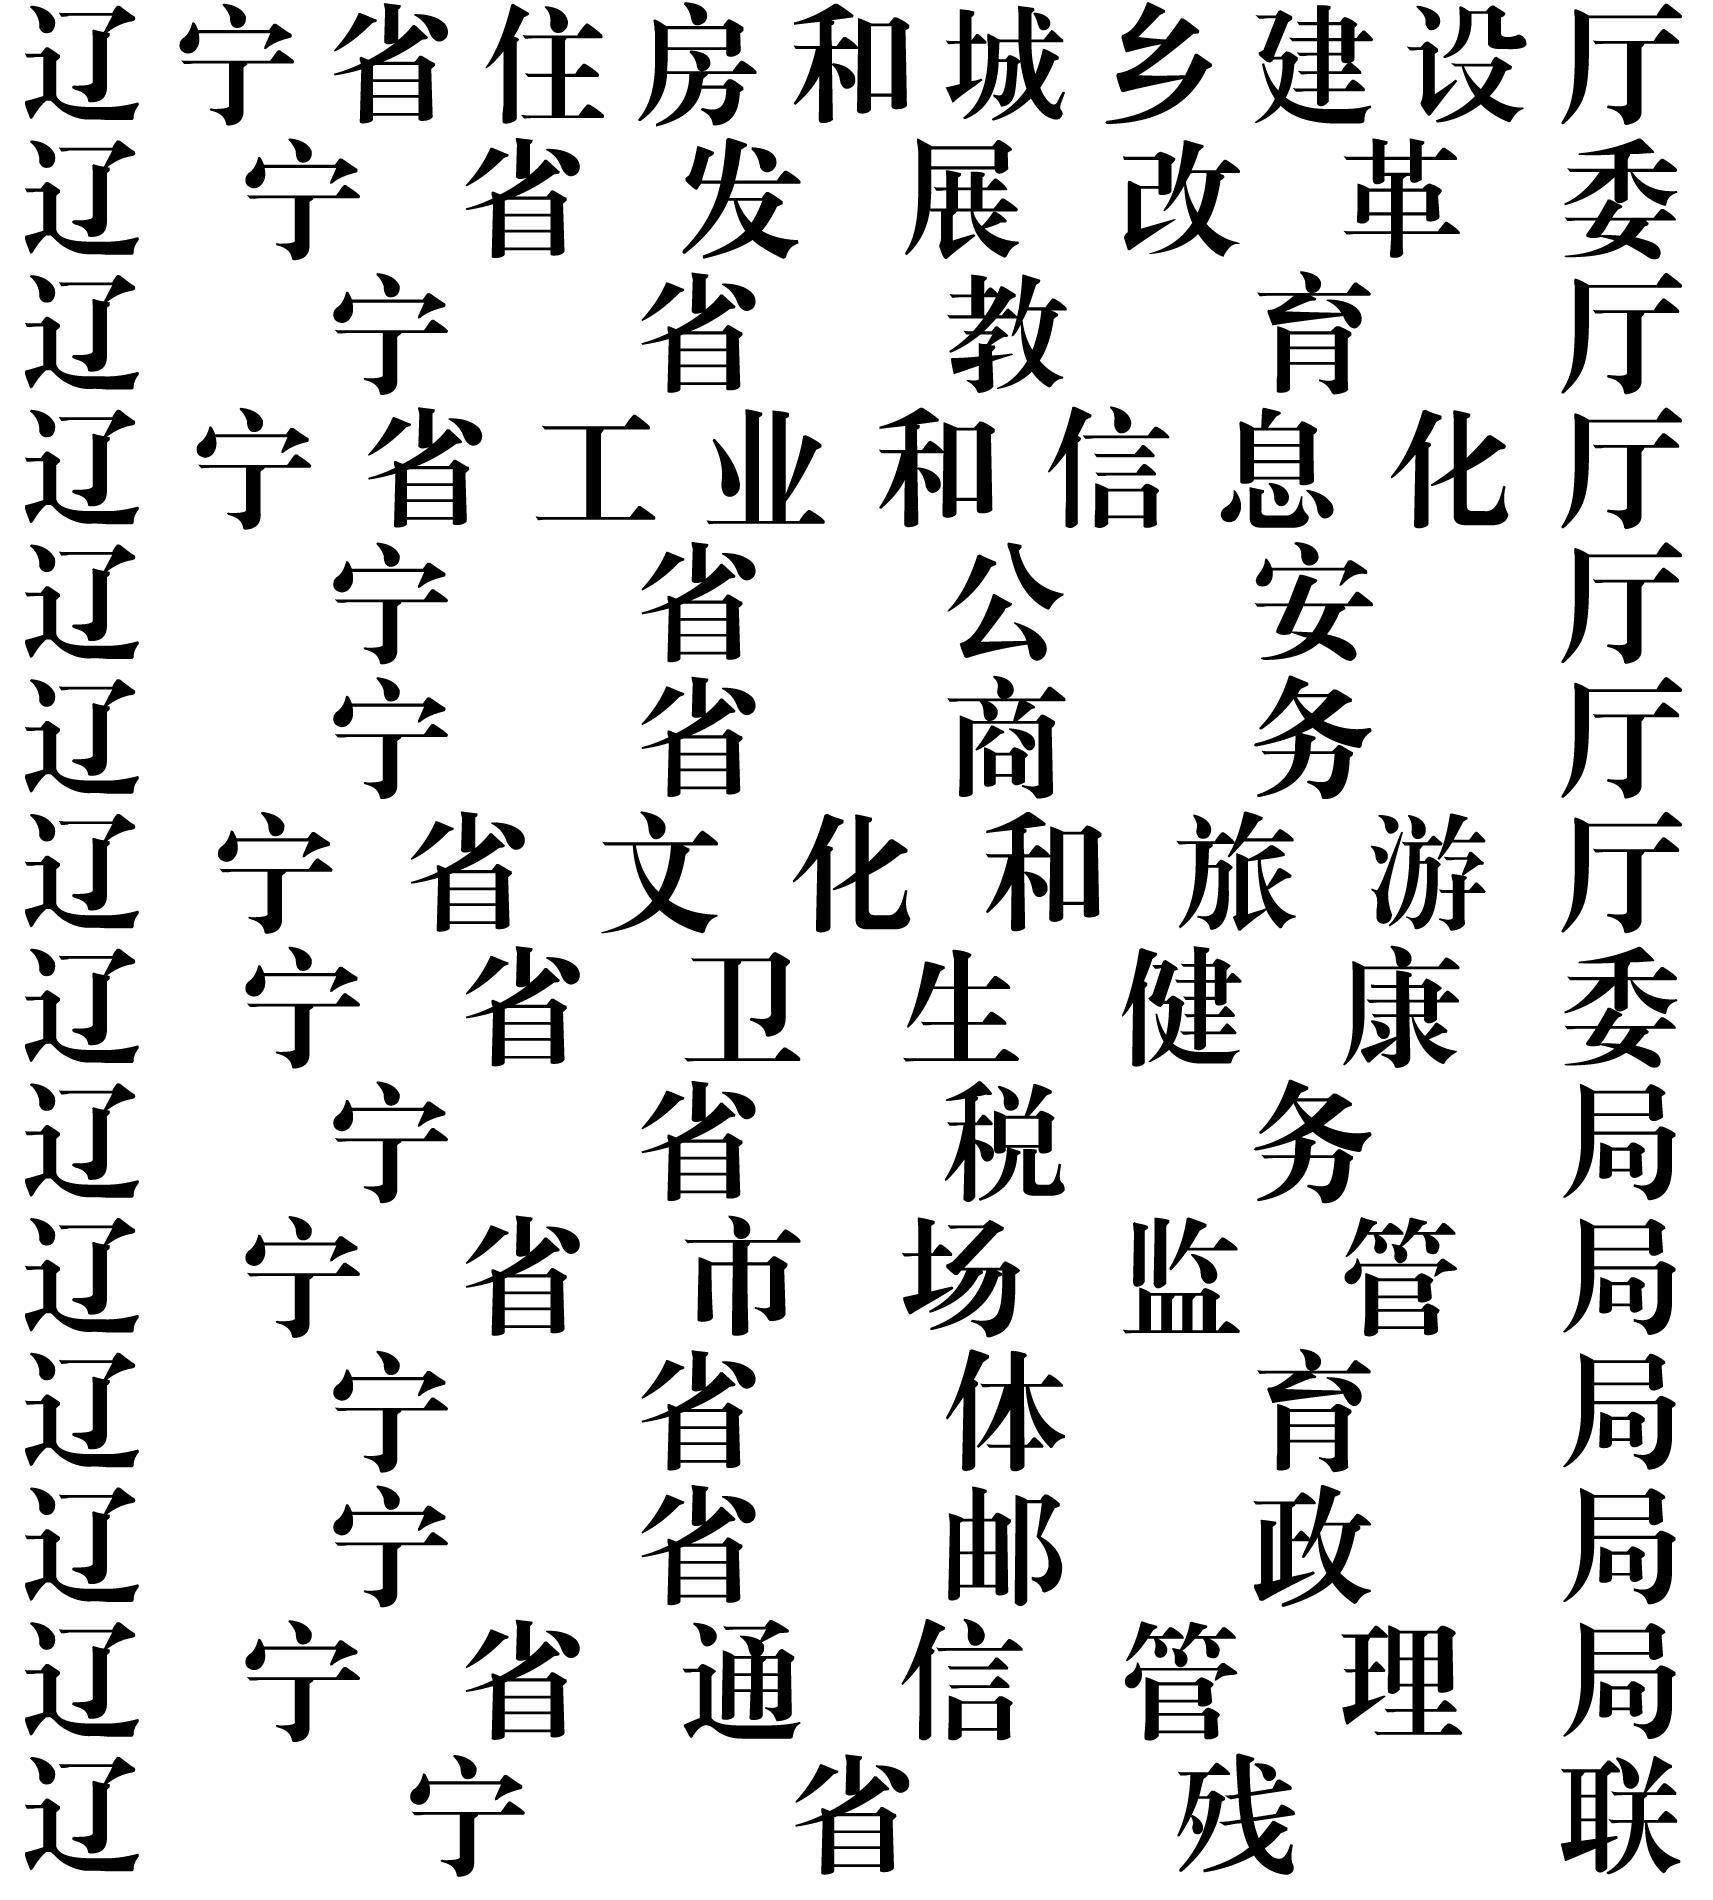 辽宁省住房和城乡建设厅
辽宁省发展改革委
辽宁省教育厅
辽宁省工业和信息化厅
辽宁省公安厅
辽宁省商务厅
辽宁省文化和旅游厅
辽宁省卫生健康委
辽宁省税务局
辽宁省市场监管局
辽宁省体育局
辽宁省邮政局
辽宁省通信管理局
辽宁省残联